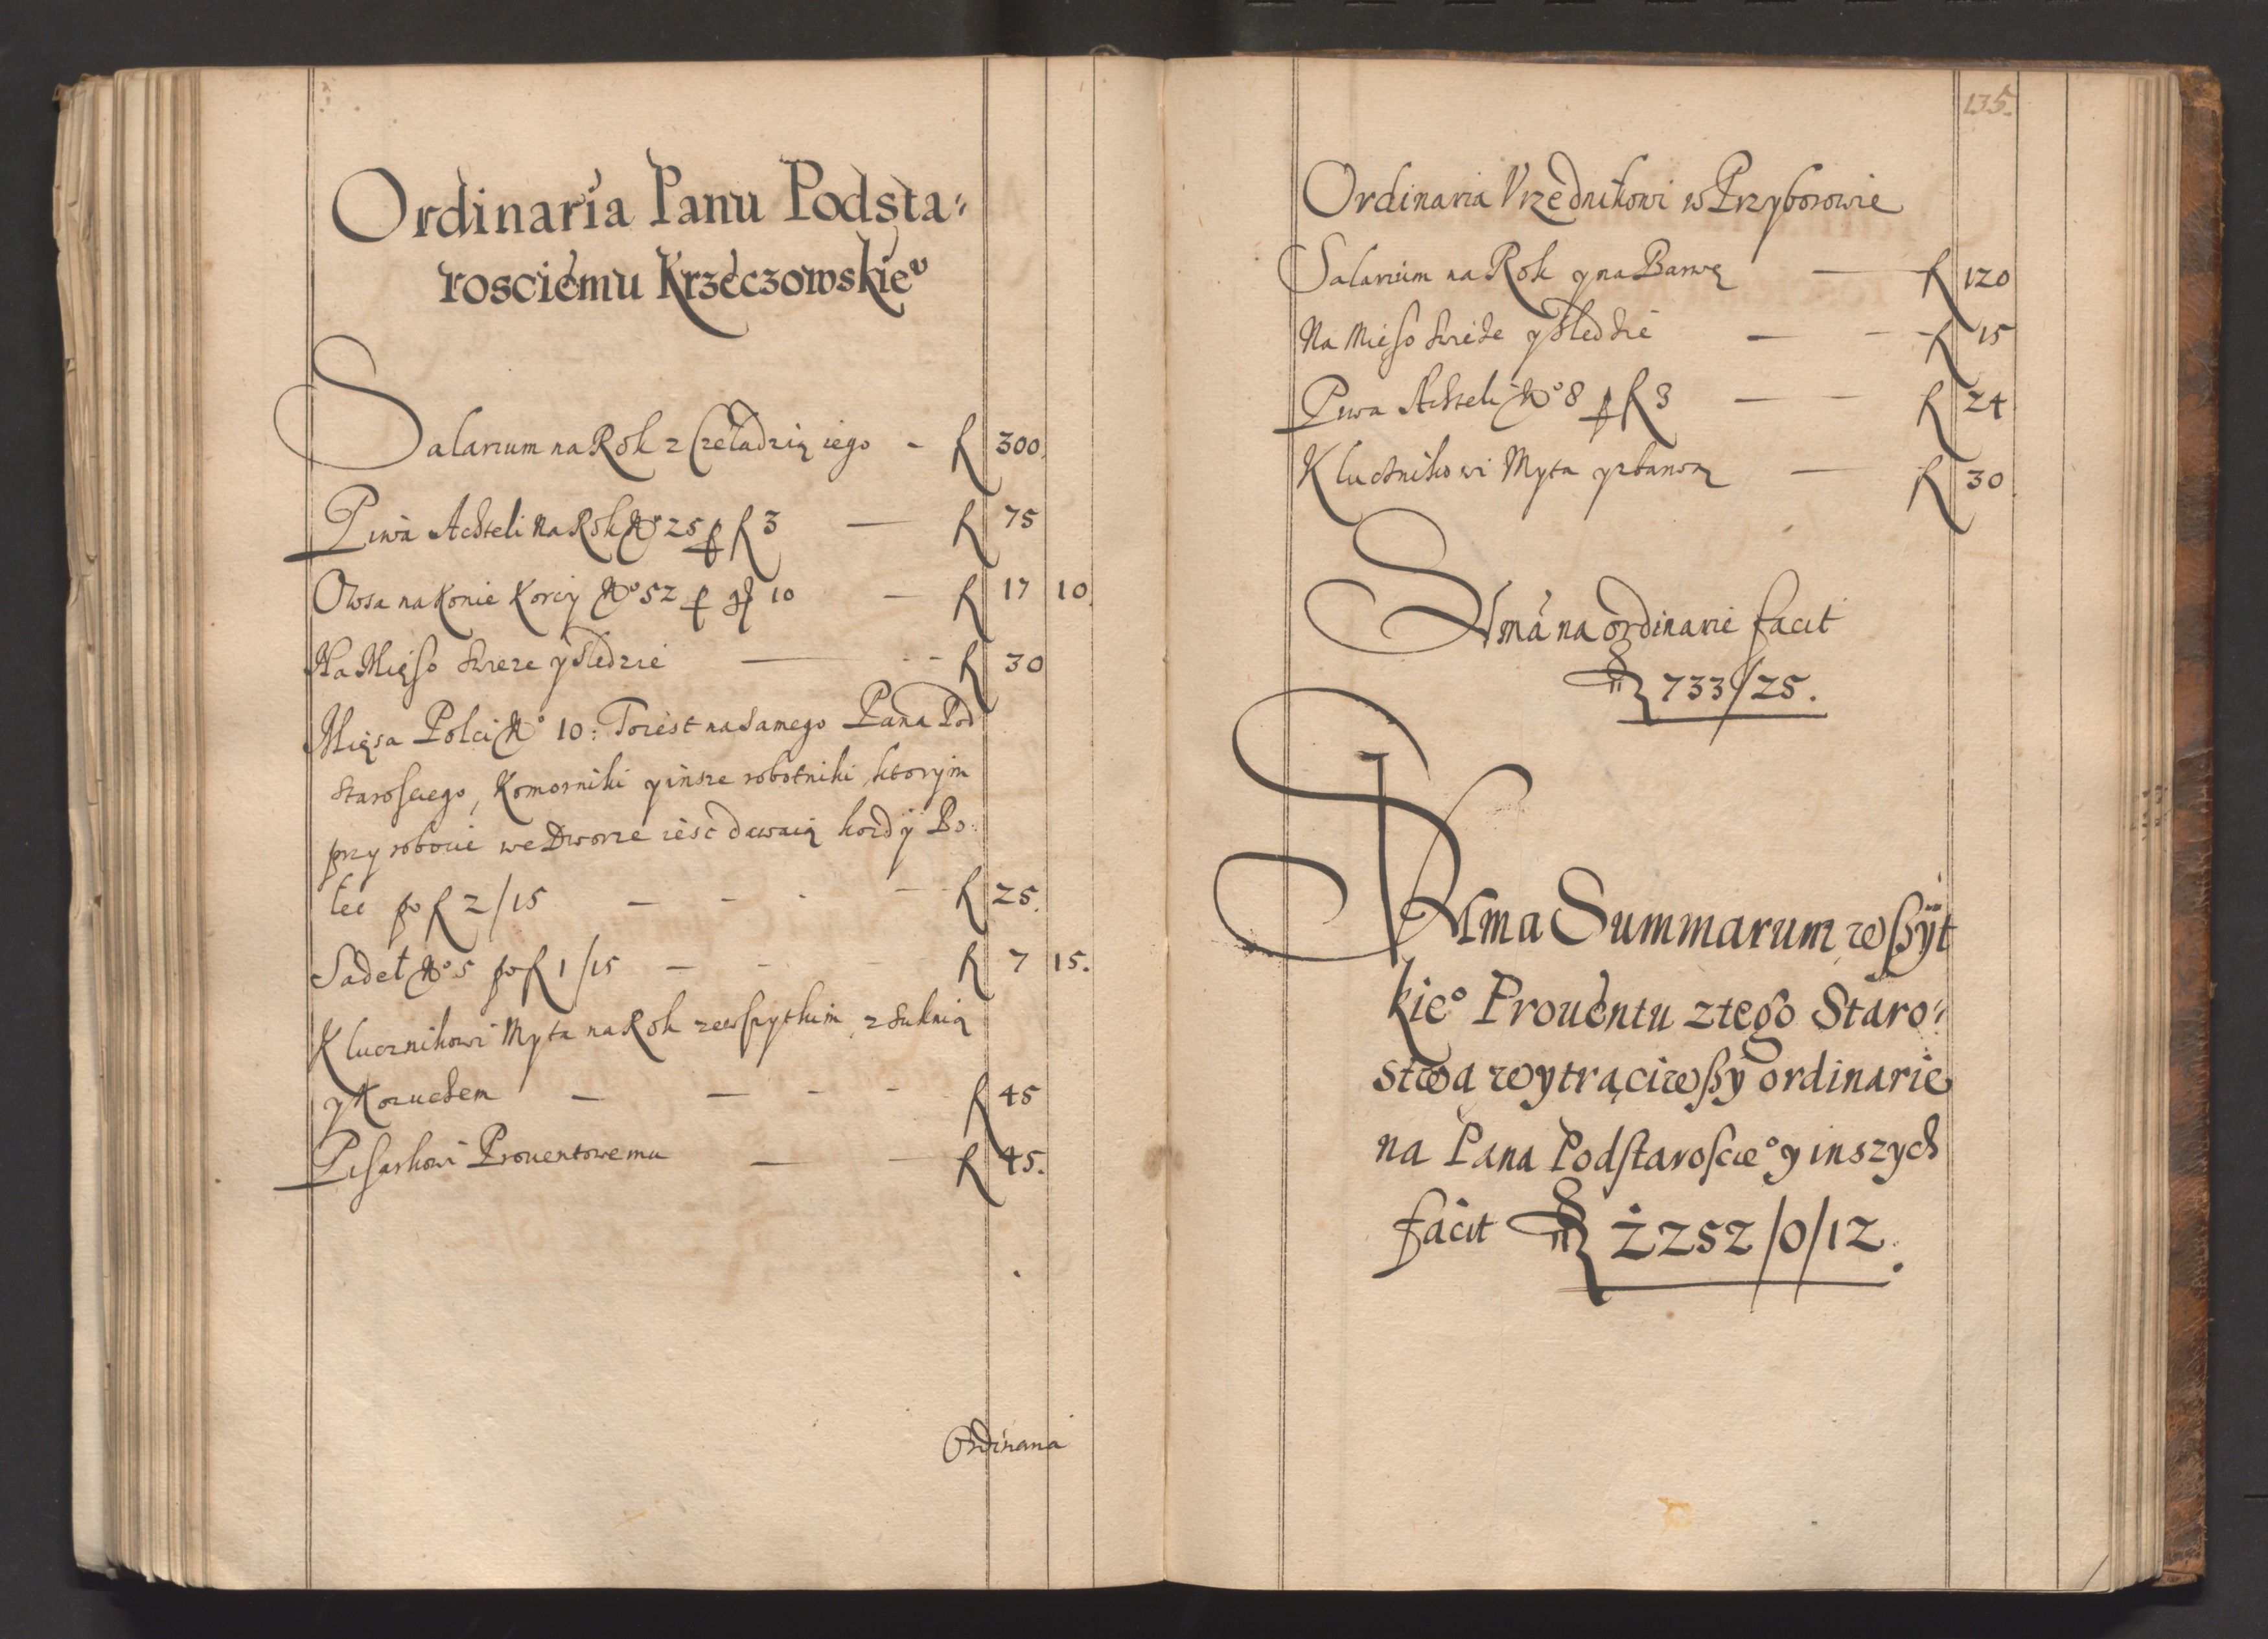 Ordinaria Panu Podsta„
rosciemu Krzeczowskieᵘ
Salarium na Rok z Czeladzią iego - f 300
Piwa Achteli Na Rok No 25 p f 3 — f 75
Owsa na Konie Korcy No 52 p gr 10 — f 17 10.
Na Mięso swieze y sledzie — f 30
Mięsa Polci No 10: To iest na samego Pana Pod
starosciego, Komorniki y insze robotniki, ktorym
przy robocie we Dworze iesc dawaią kozdy Po:
łec po f 2/15 - - - f 25.
Sadeł No 5 po f 1/15 - - - f 7 15.
Klucznikowi Myta na Rok ze wszytkim z suknią
y Kozuchem - - - f 45
Pisarkowi Prouentowemu — f 45.
Ordinaria
135.
Ordinaria Vrzednikowi w Przyborowie
Salarium na Rok y na Barwę — f 120
Na Mieso swieze y sledzie — f 15
Piwa Achteli No 8 p f 3 — f 24
Klucznikowi Myta y z barwą — f 30
Suma na ordinarie facit
f 733/25.
Suma Summarum wszyt
kieᵒ Prouentu z tego Staro„
stwa wytrąciwszy ordinarie
na Pana Podstaroscieᵒ y inszych
facit f 2252/0/12.